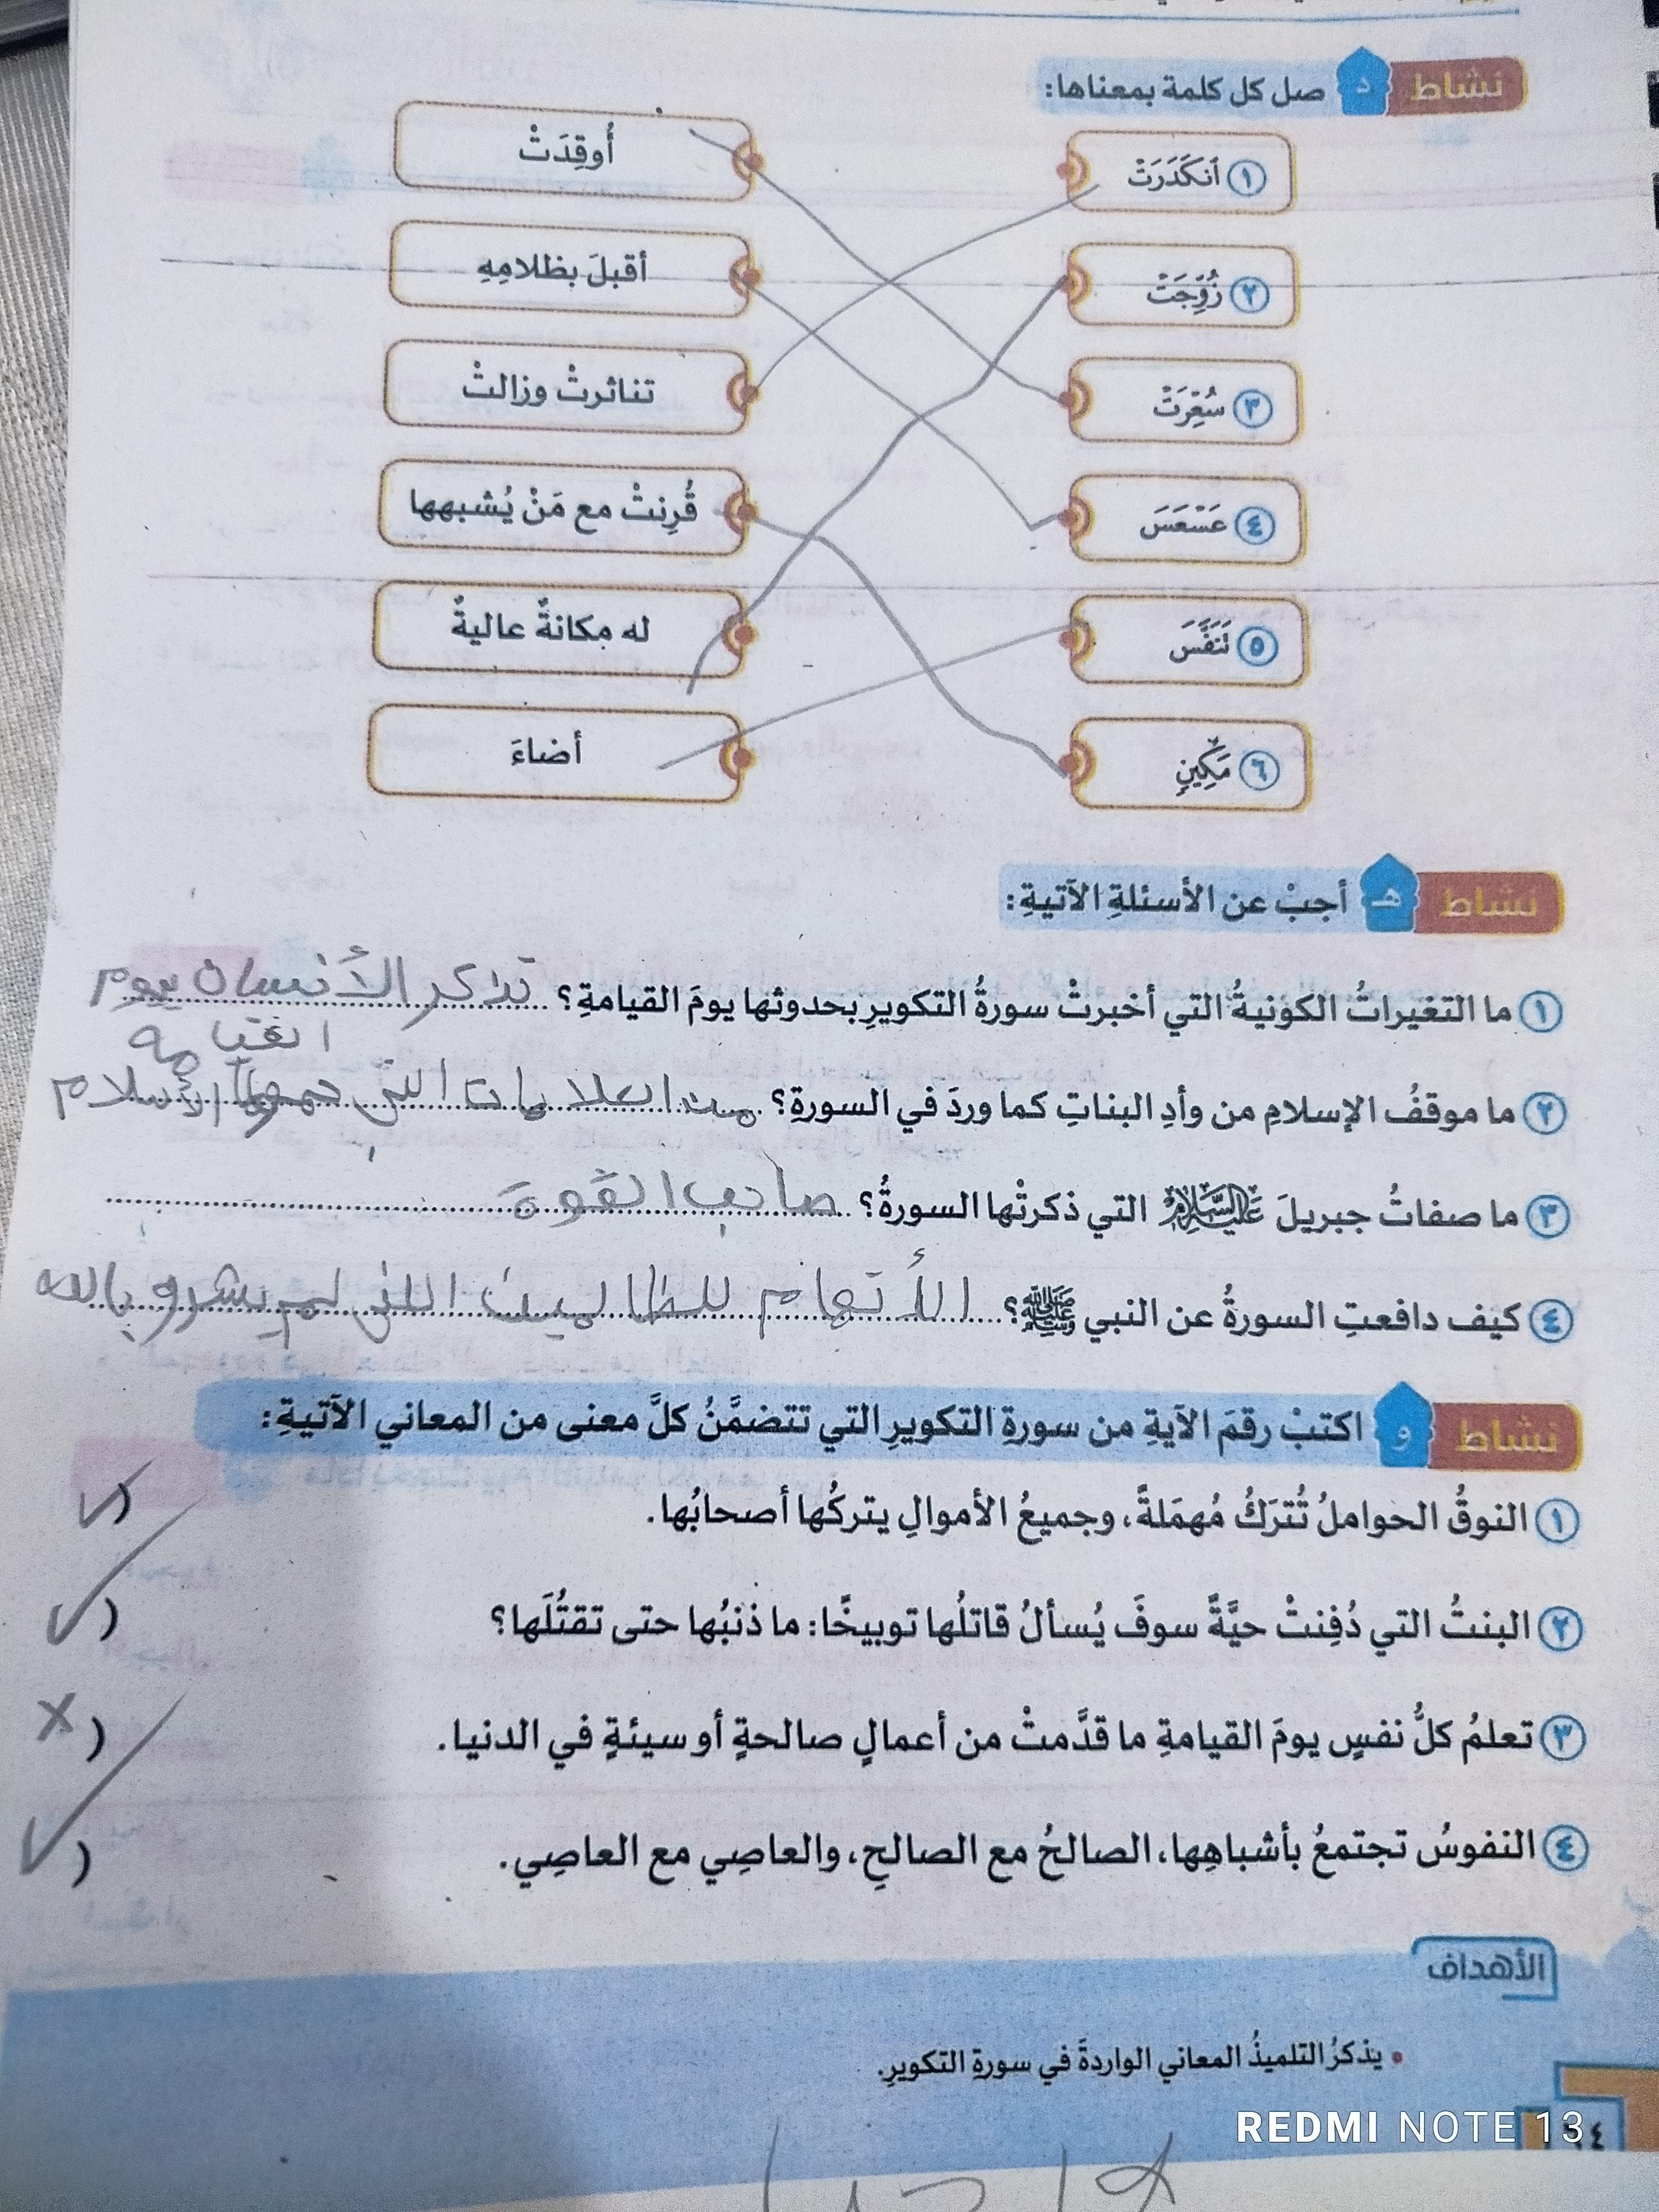 نشاط د صل كل كلمة بمعناها:
١ ٱنكَدَرَتْ
أُوقِدَتْ
٢ زُوِّجَتْ
أقبلَ بظلامِهِ
٣ سُعِّرَتْ
تناثرتْ وزالتْ
٤ عَسْعَسَ
قُرِنتْ مع مَنْ يُشبهها
٥ تَنَفَّسَ
له مكانةٌ عاليةٌ
٦ مَكِينٍ
أضاءَ
نشاط هـ أجبْ عن الأسئلةِ الآتيةِ:
١ ما التغيراتُ الكونيةُ التي أخبرتْ سورةُ التكويرِ بحدوثها يومَ القيامةِ؟ تذكر الأنسان يوم
القيامه
٢ ما موقفُ الإسلامِ من وأدِ البناتِ كما وردَ في السورةِ؟ من العلامات التي الأسلام
٣ ما صفاتُ جبريلَ عَلَيْهِ السَّلَامُ التي ذكرتْها السورةُ؟ صاحب القوة
٤ كيف دافعتِ السورةُ عن النبي ﷺ؟ الأتهام لم بالله
نشاط و اكتبْ رقمَ الآيةِ من سورةِ التكويرِ التي تتضمَّنُ كلَّ معنى من المعاني الآتيةِ:
١ النوقُ الحواملُ تُترَكُ مُهمَلةً، وجميعُ الأموالِ يتركُها أصحابُها. ) ✓
٢ البنتُ التي دُفِنتْ حيَّةً سوفَ يُسألُ قاتلُها توبيخًا: ما ذنبُها حتى تقتُلَها؟ ) ✓
٣ تعلمُ كلُّ نفسٍ يومَ القيامةِ ما قدَّمتْ من أعمالٍ صالحةٍ أو سيئةٍ في الدنيا. ) X
٤ النفوسُ تجتمعُ بأشباهِها، الصالحُ مع الصالحِ، والعاصِي مع العاصِي. ) ✓
الأهداف
• يذكرُ التلميذُ المعاني الواردةَ في سورةِ التكويرِ.
REDMI NOTE 13